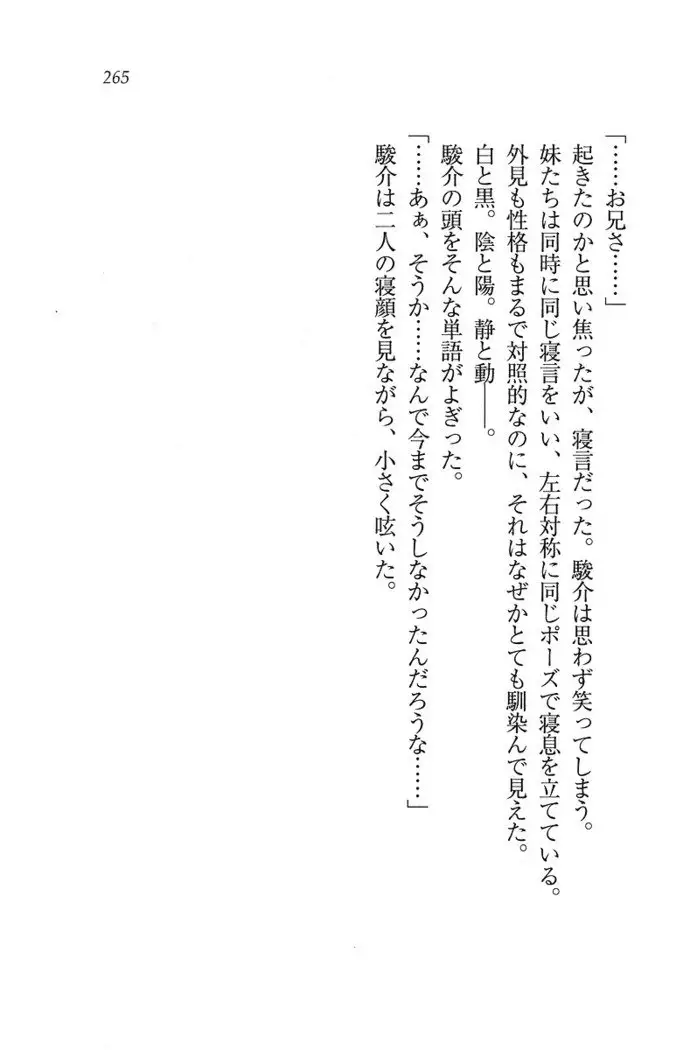 265
「……お兄さ……」
起きたのかと思い焦ったが、寝言だった。駿介は思わず笑ってしまう。
妹たちは同時に同じ寝言をいい、左右対称に同じポーズで寝息を立てている。
外見も性格もまるで対照的なのに、それはなぜかとても馴染んで見えた。
白と黒。陰と陽。静と動――。
駿介の頭をそんな単語がよぎった。
「……あぁ、そうか……なんで今までそうしなかったんだろうな……」
駿介は二人の寝顔を見ながら、小さく呟いた。